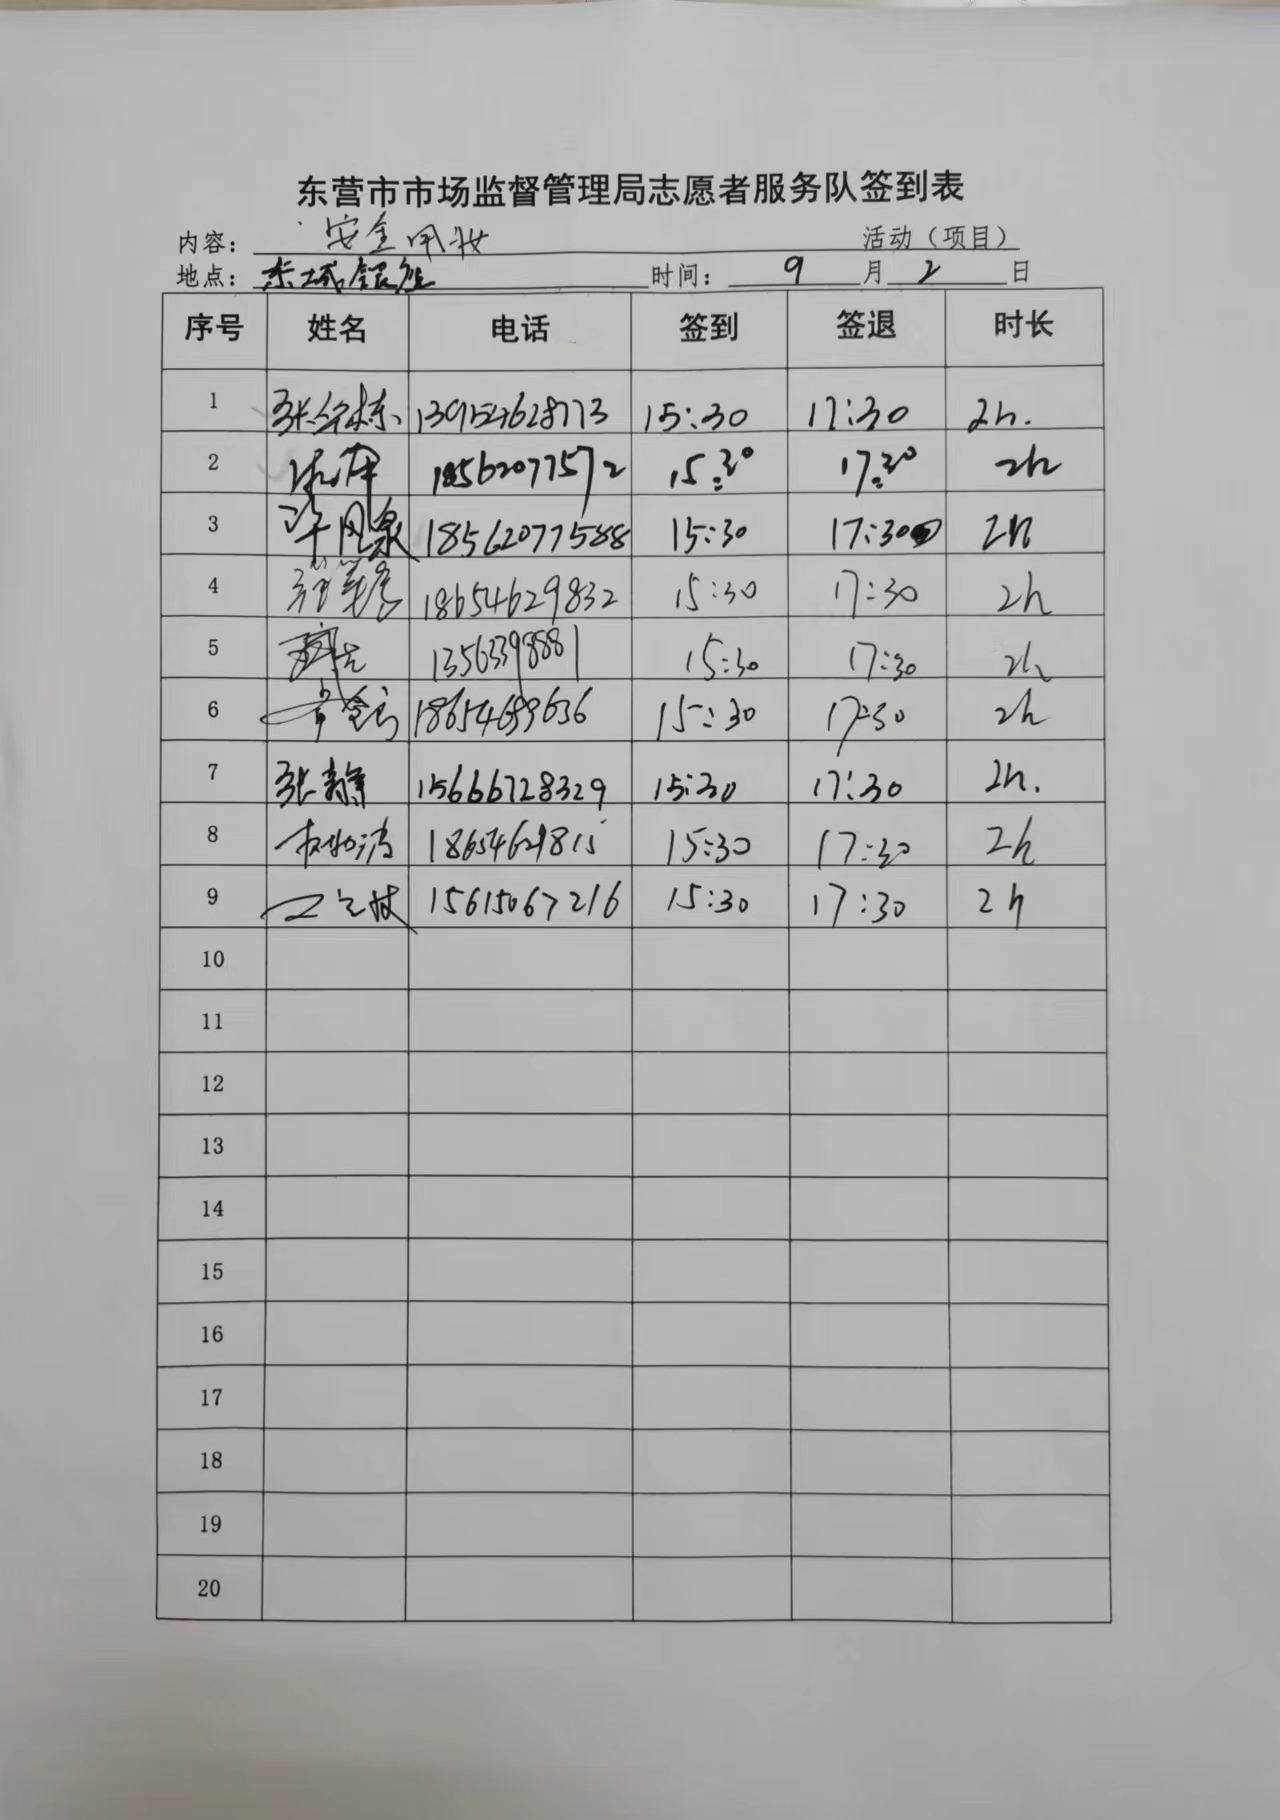 东营市市场监督管理局志愿者服务队签到表
内容：安全用妆 活动（项目）
地点：东城银座 时间：9月2日
序号 姓名 电话 签到 签退 时长
1 13954628773 15:30 17:30 2h.
2 18562077572 15:30 17:30 2h
3 18562077588 15:30 17:30 2h
4 18654629832 15:30 17:30 2h
5 13563398881 15:30 17:30 2h
6 15:30 17:30 2h
7 张静 15666728329 15:30 17:30 2h.
8 18654629815 15:30 17:30 2h
9 15615067216 15:30 17:30 2h
10
11
12
13
14
15
16
17
18
19
20